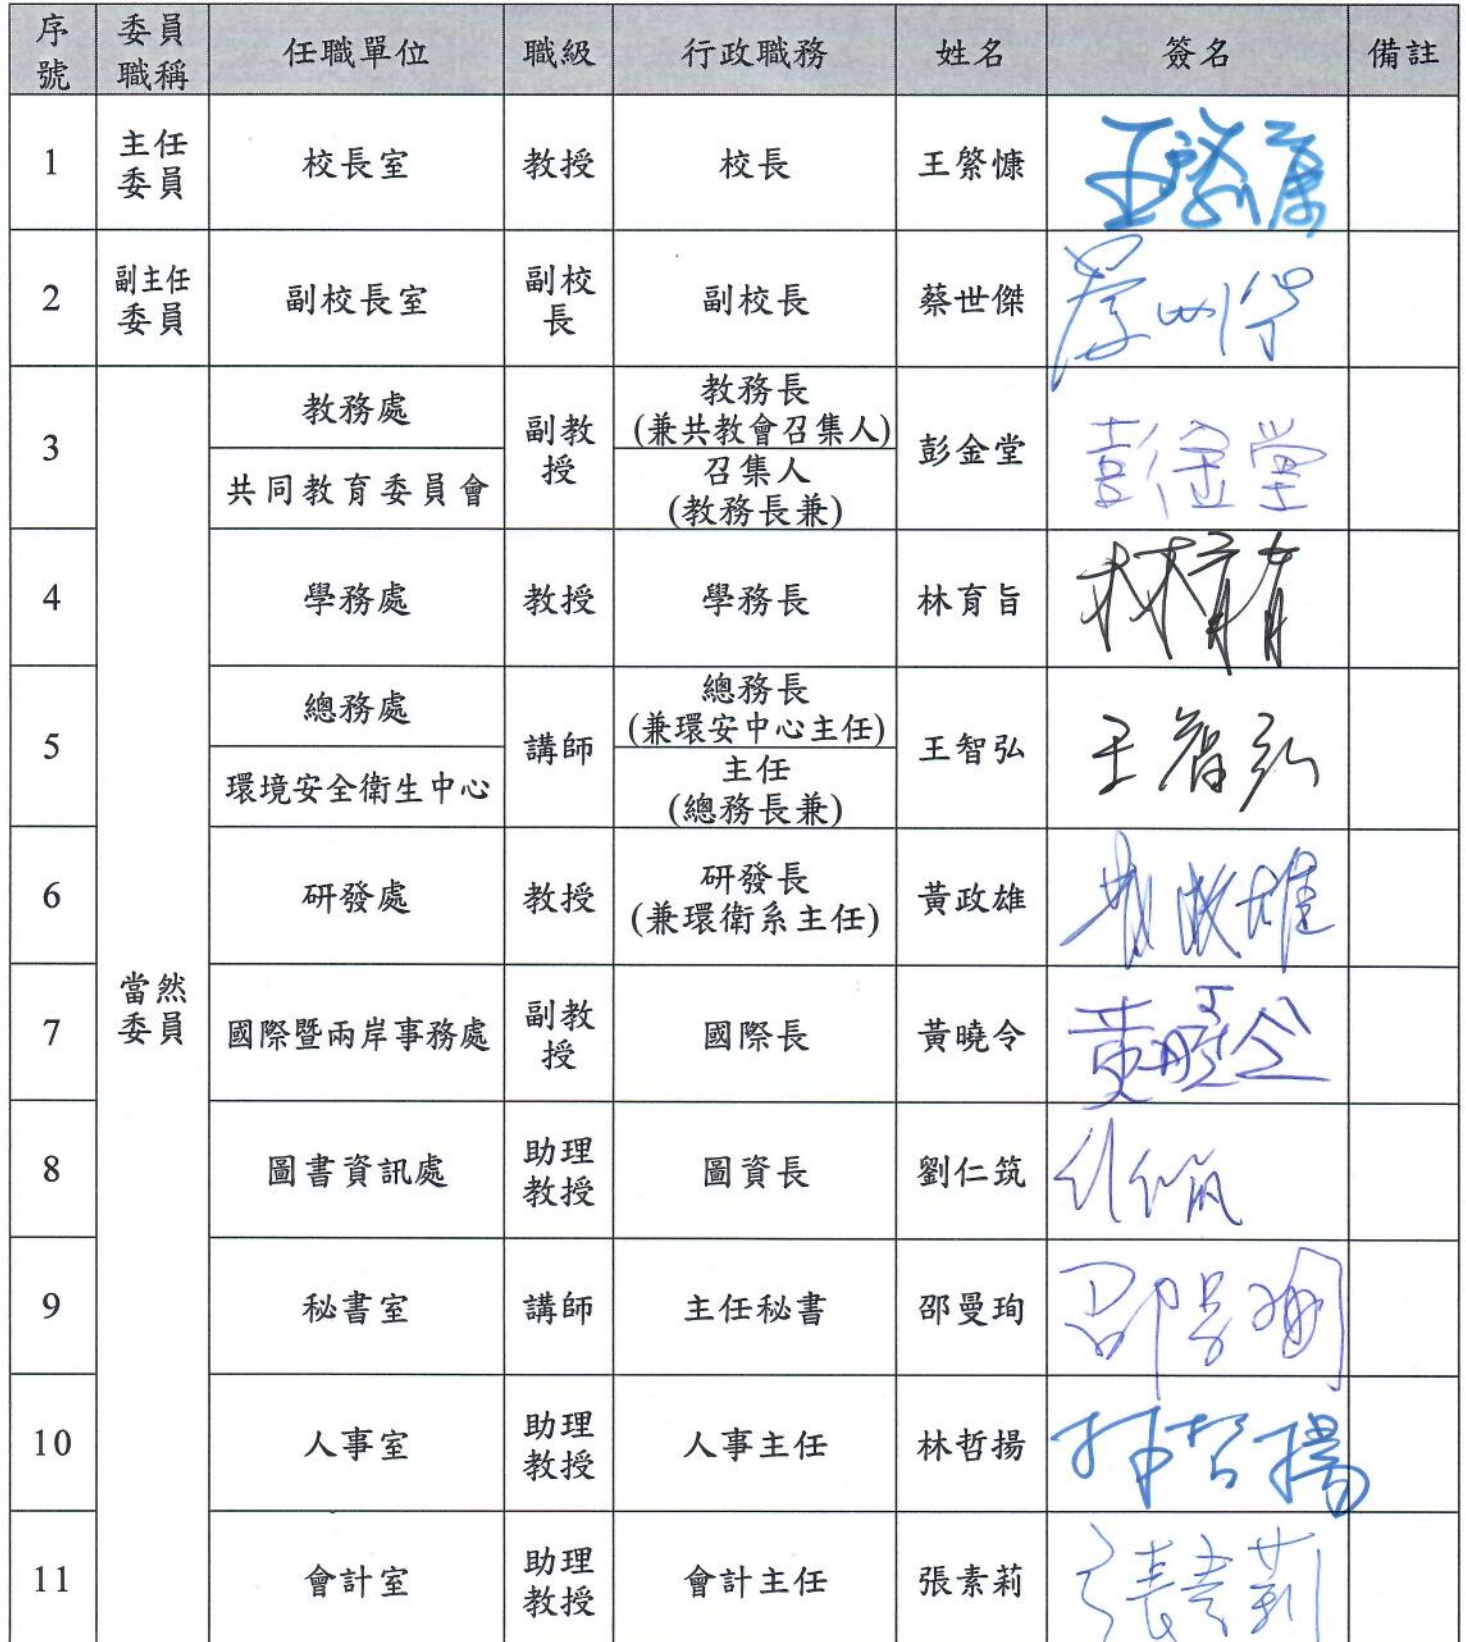 序號 委員職稱 任職單位 職級 行政職務 姓名 簽名 備註
1 主任委員 校長室 教授 校長 王綮慷 王綮慷
2 副主任委員 副校長室 副校長 副校長 蔡世傑
3 教務處 副教授 教務長 彭金堂 彭金堂
(兼共教會召集人)
共同教育委員會 召集人
(教務長兼)
4 學務處 教授 學務長 林育旨 林育旨
5 總務處 講師 總務長 王智弘 王智弘
(兼環安中心主任)
環境安全衛生中心 主任
(總務長兼)
6 研發處 教授 研發長 黃政雄 黃政雄
(兼環衛系主任)
當然委員
7 國際暨兩岸事務處 副教授 國際長 黃曉令 黃曉令
8 圖書資訊處 助理教授 圖資長 劉仁筑
9 秘書室 講師 主任秘書 邵曼珣 邵曼珣
10 人事室 助理教授 人事主任 林哲揚 林哲揚
11 會計室 助理教授 會計主任 張素莉 張素莉